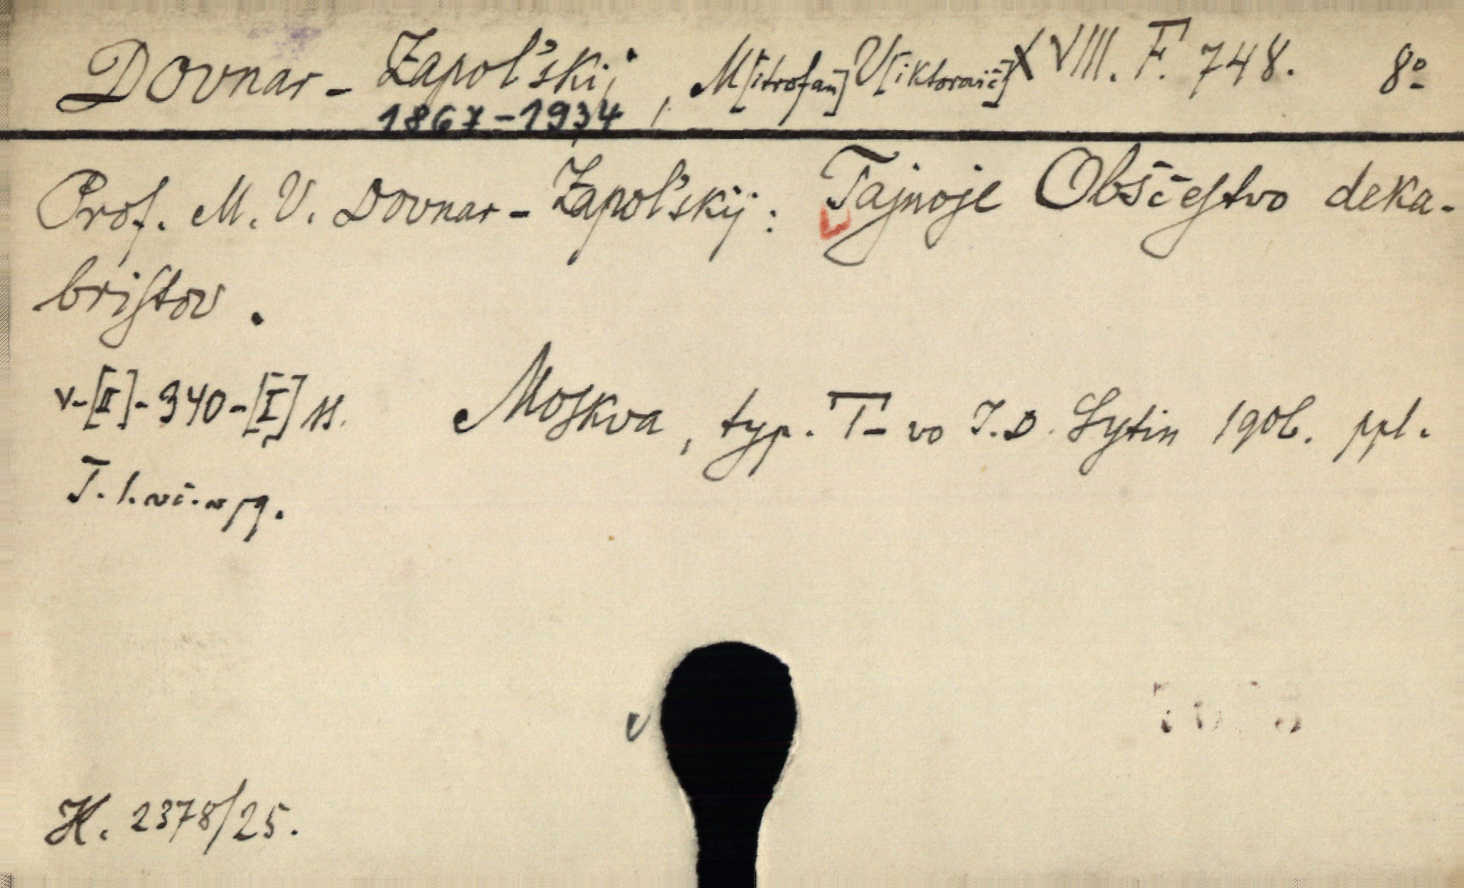 Dovnar-Zapol'skij, M[itrofan] V[iktorovič] XVIII. F. 748. 8º
1867-1934
Prof. M. V. Dovnar-Zapol'skij: Tajnoje Obščestvo deka-
bristov.
v-[II]-340-[I] ss. Moskva, typ. T-vo I. D. Sytin 1906. ppl.
T. l. vč. v pg.
H. 2378/25.